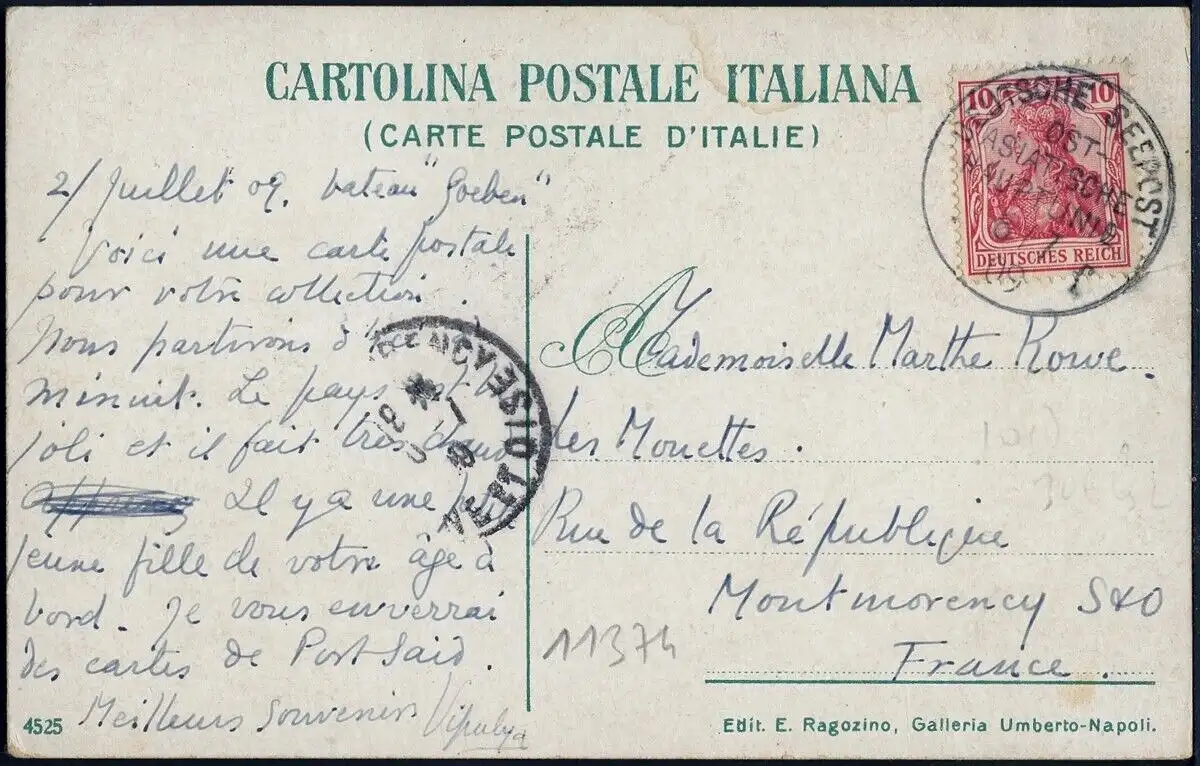 CARTOLINA POSTALE ITALIANA
(CARTE POSTALE D'ITALIE)
10 10
DEUTSCHES REICH
DEUTSCHE SEEPOST
OST-
ASIATISCHE
HAUPTLINIE
09
2/ Juillet 09. bateau "Goeben"
Voici une carte postale
pour votre collection.
Nous partirons d'ici
minuit. Le pays est
joli et il fait très
Il y a une
jeune fille de votre âge à
bord. Je vous enverrai
des cartes de Port Said.
Meilleurs Souvenirs
MONTMORENCY
SEINE-ET-OISE
Mademoiselle Marthe Rowe.
Les Mouettes.
Rue de la République
Montmorency S&O
France.
11374
4525
Edit. E. Ragozino, Galleria Umberto-Napoli.